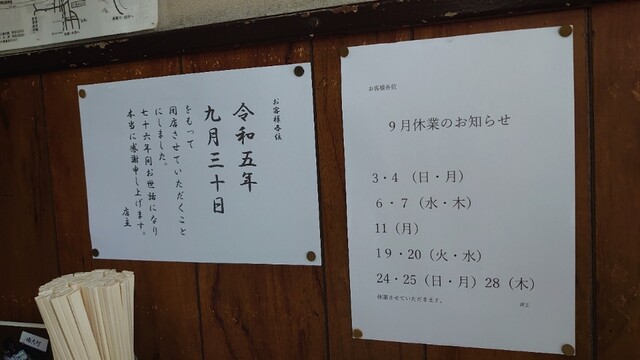 お客様各位
令和五年
九月三十日
をもって
閉店させていただくこと
にしました。
七十六年間お世話になり
本当に感謝申し上げます。
店主
お客様各位
9月休業のお知らせ
3・4 (日・月)
6・7 (水・木)
11(月)
19・20(火・水)
24・25(日・月)28(木)
休業させていただきます。
店主